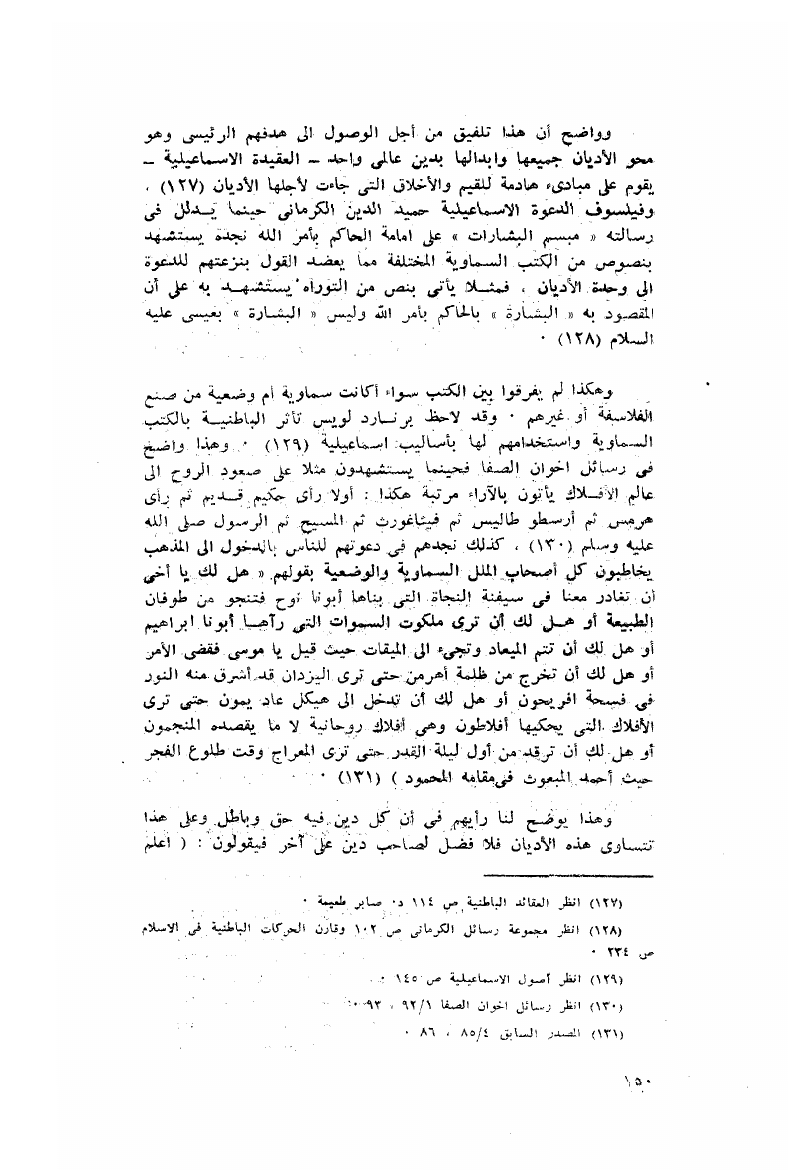 وواضح أن هذا تلفيق من أجل الوصول الى هدفهم الرئيسى وهو
محو الأديان جميعها وابدالها بدين عالمى واحد ــ العقيدة الاسماعيلية ــ
يقوم على مبادىء هادمة للقيم والأخلاق التى جاءت لأجلها الأديان (١٢٧) ،
وفيلسوف الدعوة الاسماعيلية حميد الدين الكرمانى حينما يـدلل فى
رسالته « مبسم البشارات » على امامة الحاكم بأمر الله نجده يستشهد
بنصوص من الكتب السماوية المختلفة مما يعضد القول بنزعتهم للدعوة
الى وحدة الأديان ، فمثـلا يأتى بنص من التوراه يستشهـد به على أن
المقصود به « البشارة » بالحاكم بأمر الله وليس « البشارة » بعيسى عليه
السلام (١٢٨) ٠
وهكذا لم يفرقوا بين الكتب سواء أكانت سماوية أم وضعية من صنع
الفلاسفة أو غيرهم ٠ وقد لاحظ برنارد لويس تأثر الباطنيـة بالكتب
السماوية واستخدامهم لها بأساليب اسماعيلية (١٢٩) ٠ وهذا واضح
فى رسائل اخوان الصفا فحينما يستشهدون مثلا على صعود الروح الى
عالم الأفـلاك يأتون بالآراء مرتبة هكذا : أولا رأى حكيم قـديم ثم رأى
هرمس ثم أرسطو طاليس ثم فيثاغورث ثم المسيح ثم الرسول صلى الله
عليه وسلم (١٣٠) ، كذلك نجدهم فى دعوتهم للناس بالدخول الى المذهب
يخاطبون كل أصحاب الملل السماوية والوضعية بقولهم « هل لك يا أخى
أن تغادر معنا فى سيفنة النجاة التى بناها أبونا نوح فتنجو من طوفان
الطبيعة أو هـل لك أن ترى ملكوت السموات التى رآهـا أبونا ابراهيم
أو هل لك أن تتم الميعاد وتجىء الى الميقات حيث قيل يا موسى فقضى الأمر
أو هل لك أن تخرج من ظلمة أهرمن حتى ترى اليزدان قد أشرق منه النور
فى فسحة افريحون أو هل لك أن تدخل الى هيكل عاد يمون حتى ترى
الأفلاك التى يحكيها أفلاطون وهى أفلاك روحانية لا ما يقصده المنجمون
أو هل لك أن ترقد من أول ليلة القدر حتى ترى المعراج وقت طلوع الفجر
حيث أحمد المبعوث فى مقامه المحمود ) (١٣١) ٠
وهذا يوضح لنا رأيهم فى أن كل دين فيه حق وباطل وعلى هذا
تتساوى هذه الأديان فلا فضل لصاحب دين على آخر فيقولون : ( أعلم
(١٢٧) انظر العقائد الباطنية ص ١١٤ د٠ صابر طعيمة ٠
(١٢٨) انظر مجموعة رسائل الكرمانى ص ١٠٢ وقارن الحركات الباطنية فى الاسلام
ص ٢٣٤ ٠
(١٢٩) انظر أصول الاسماعيلية ص ١٤٥ ٠
(١٣٠) انظر رسائل اخوان الصفا ٩٢/١ ، ٩٣ ٠
(١٣١) المصدر السابق ٨٥/٤ ، ٨٦ ٠
١٥٠